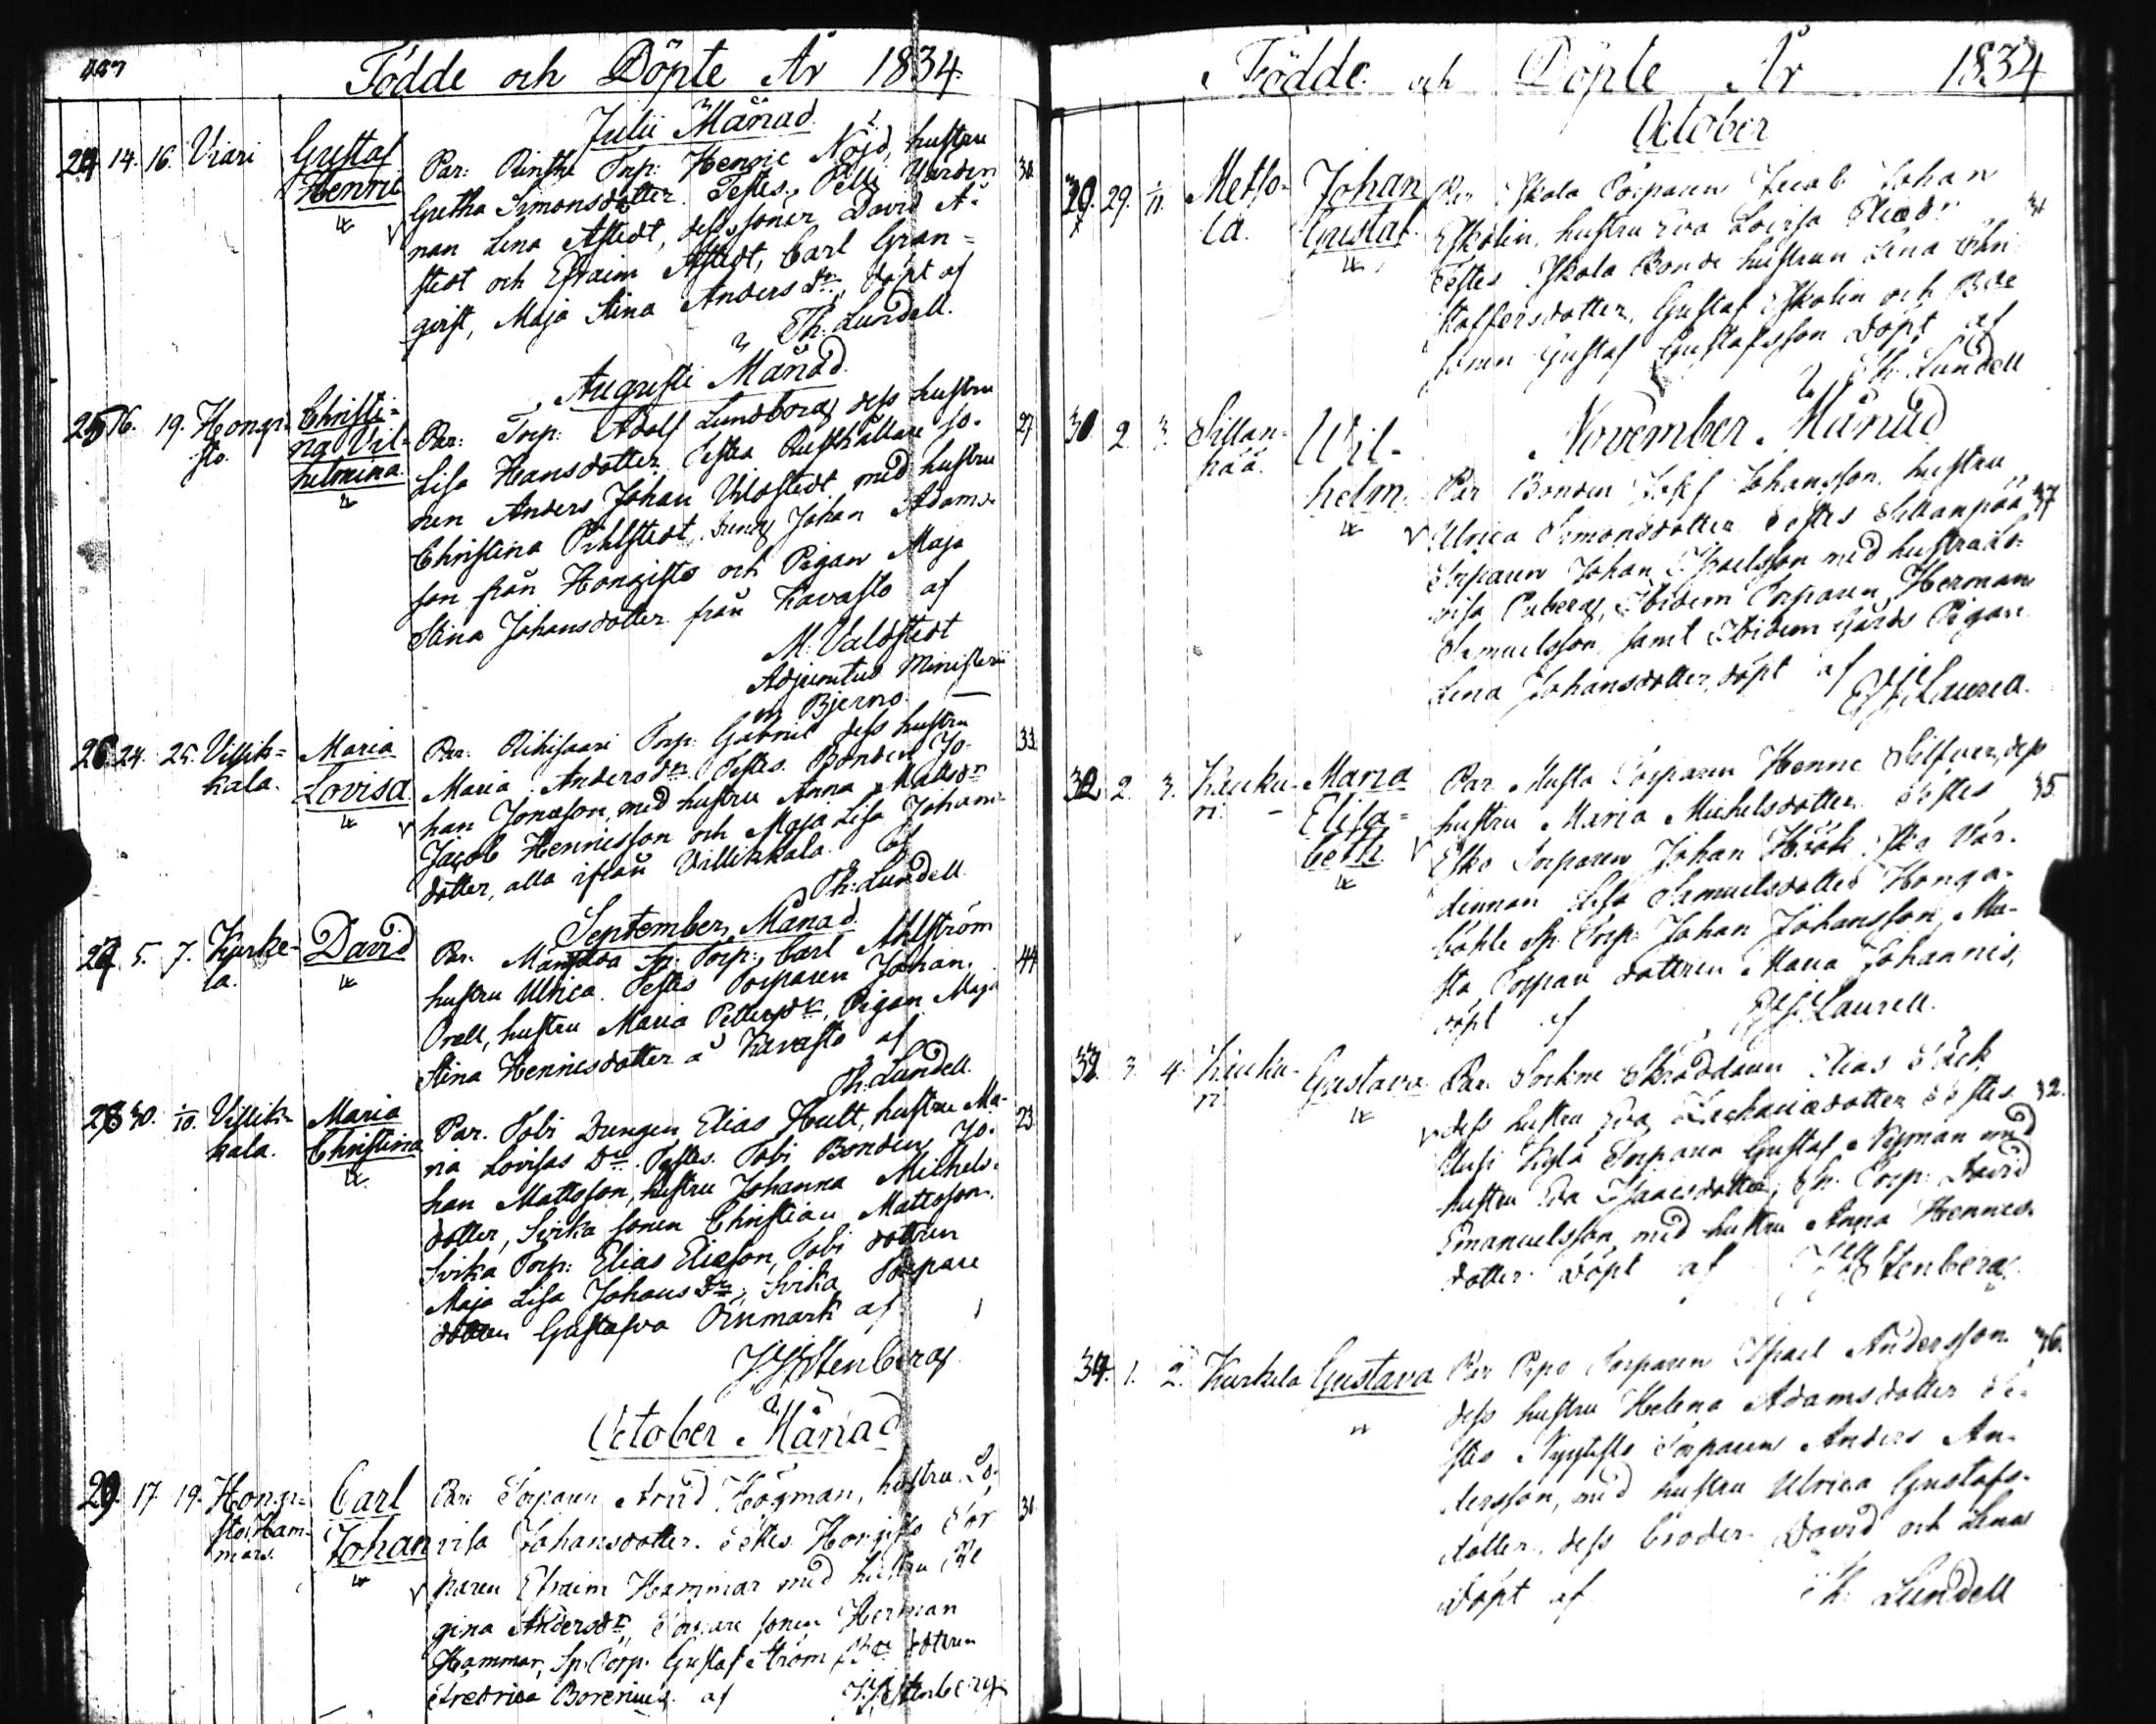 Födde och Döpte År 1834.
Julii Månad.
24 14. 16. Viari Gustaf Henric
Par: Torp: Henric Nöjd, hustru 30.
Gretha Simonsdotter. Testes,
nan Lena Alstedt, dess soner David Al-
stedt och Efraim Alstedt, Carl Gran-
qvist, Maja Stina Anders Dr., döpt af
Th: Lundell.
Augusti Månad.
25 16. 19. Hongi-sto. Christi-na Vil-helmina.
Par: Torp: Adolf Lundborg dess hustru 27
Lisa Hansdotter. Testes Rusthållare so-
nen Anders Johan Valdstedt med hustru
Christina Pihlstedt, Dreng Johan Adams-
son från Hongisto och Pigan Maja
Stina Johansdotter från Kavasto af
M: Valdstedt
Adjunctus Ministerii
in Bjerno.
26. 24. 25. Villik-kala. Maria Lovisa.
Par: Rihisaari Torp: Gabriel dess hustru 33.
Maria Anders dr. Testes. Bonden Jo-
han Jonasson, med hustru Anna Matts dr
Jacob Hennicsson och Maja Lisa Johans-
dotter, alla ifrån Villikkala. af
Th: Lundell.
September Månad.
27 5. 7. Kurke-la. David
Par. Sp: Torp:, Carl Ahlström 44
hustru Ulrica. Testes Torparen Johan
Orell, hustru Maria Petters dr, Pigan Maja
Stina Hennicsdotter å Kavasto af
Th: Lundell.
28 30. 1/10. Villik-kala. Maria Christina
Par. Tobi Drengen Elias Hult, hustru Ma- 23.
ria Lovisas Dr. Testes. Tobi Bonden Jo-
han Mattsson, hustru Johanna Michels-
dotter, Svika sonen Christian Mattsson.
Svika Torp: Elias Eliasson, Tobi dottren
Maja Lisa Johans Dr, Svika Torpare
dottren Gustafva Öinmark af
Stenberg
October Månad
29. 17. 19. Hongi-sto. Ham-mars. Carl Johan
Par: Torparen Arvid Högman, hustru Lo- 31.
visa Johansdotter. Testes. Hongisto Tor
paren Efraim Hammar med hustru Re
gina Anders dr, Torpare sonen Herman
Hammar, Sp: Torp: Gustaf Ström dottren
Fredrica Borenius af Stenberg
Födde och Döpte År 1834
October
29. 29. 1/11. Metso-la. Johan Gustaf.
Iskala Torparen Jacob Johan
Eskolin, hustru Eva Lovisa Eliæ dr. 31
Testes Iskala Bonde hustrun Lena Chri
stoffersdotter, Gustaf Eskolin och Bde
sonen Gustaf Gustafsson döpt af
Th: Lundell
November Månad
30. 2. 3. Sillan-pää. Wil-helm.
Par Bonden Josef Johansson, hustru
Ulrica Simonsdotter Testes Sillanpää 37
Torparen Johan Israelsson med hustru Lo-
visa, Ibidem Torparen Herman
Samuelsson, samt Ibidem Gårds Pigan
Lena Johansdotter, döpt af Laurell.
32 2. 3. Kuuku-ri. Maria Elisa-beth.
Par Torparen Henric Silfver, dess
hustru Maria Michelsdotter Testes 35.
Esko Torparen Johan Höök, Vär-
dinnan Lisa Samuelsdotter Honga-
Sp: Torp: Johan Johansson, Mu-
sta Torpare dottren Maria Johannis,
döpt af Laurell.
32. 3. 4. Kuuku-ri. Gustava
Par. Sockne Skräddaren Elias
dess hustru Eva Zachariædotter Testes 32.
Torparen Gustaf Nyman med
hustru Eva Isaacsdotter, Sp: Torp: David
Emanuelsson, med hustru Anna Hennics
dotter. döpt af Stenberg
34. 1. 2. Kurkela Gustava
Par Torparen Israel Andersson 36.
dess hustru Helena Adamsdotter Te-
stes Torparen Anders An-
dersson, med hustru Ulrica Gustafs-
dotter, dess broder David och Lena
döpt af Th: Lundell